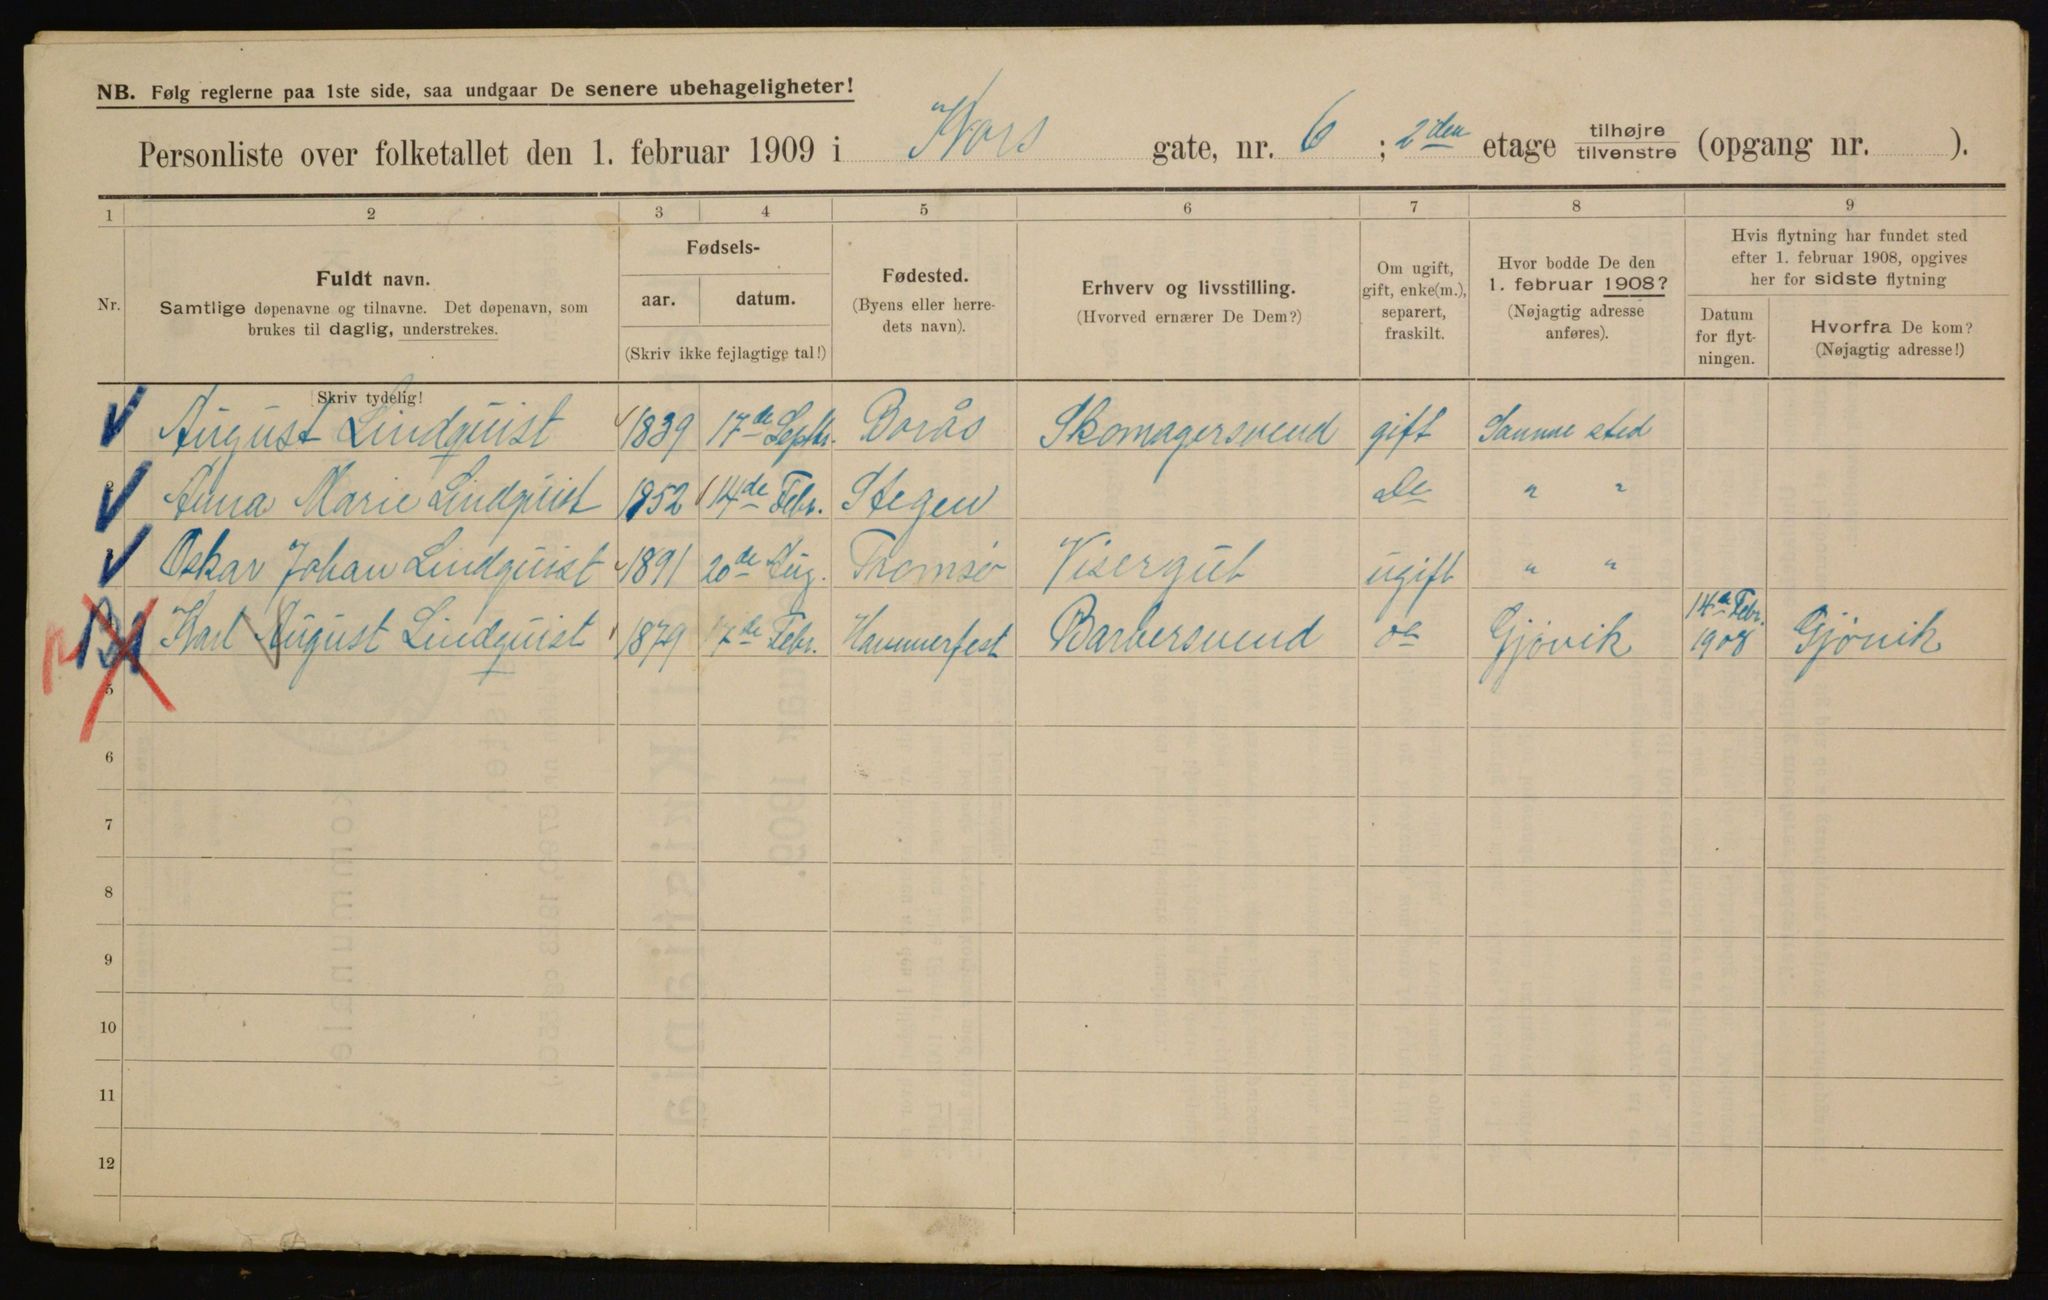 NB. Følg reglerne paa 1ste side, saa undgaar De senere ubehageligheter!
Personliste over folketallet den 1. februar 1909 i Kors gate, nr. 6 ; 2den etage tilhøjre tilvenstre (opgang nr. ).
1 2 3 4 5 6 7 8 9
Nr.
Fuldt navn.
Samtlige døpenavne og tilnavne. Det døpenavn, som
brukes til daglig, understrekes.
Skriv tydelig!
Fødsels-
aar. datum.
(Skriv ikke fejlagtige tal!)
Fødested.
(Byens eller herre-
dets navn).
Erhverv og livsstilling.
(Hvorved ernærer De Dem?)
Om ugift,
gift, enke(m.),
separert,
fraskilt.
Hvor bodde De den
1. februar 1908?
(Nøjagtig adresse
anføres).
Hvis flytning har fundet sted
efter 1. februar 1908, opgives
her for sidste flytning
Datum
for flyt-
ningen.
Hvorfra De kom?
(Nøjagtig adresse!)
August Lindquist 1839 17de Septbr. Borås Skomagersvend gift Samme sted
Anna Marie Lindquist 1852 14de Febr. Stegen Do " "
Oskar Johan Lindquist 1891 20de Aug. Tromsø Visergut ugift " "
Karl August Lindquist 1879 17de Febr. Hammerfest Barbersvend do Gjøvik 14de Febr. 1908 Gjøvik
5
6
7
8
9
10
11
12